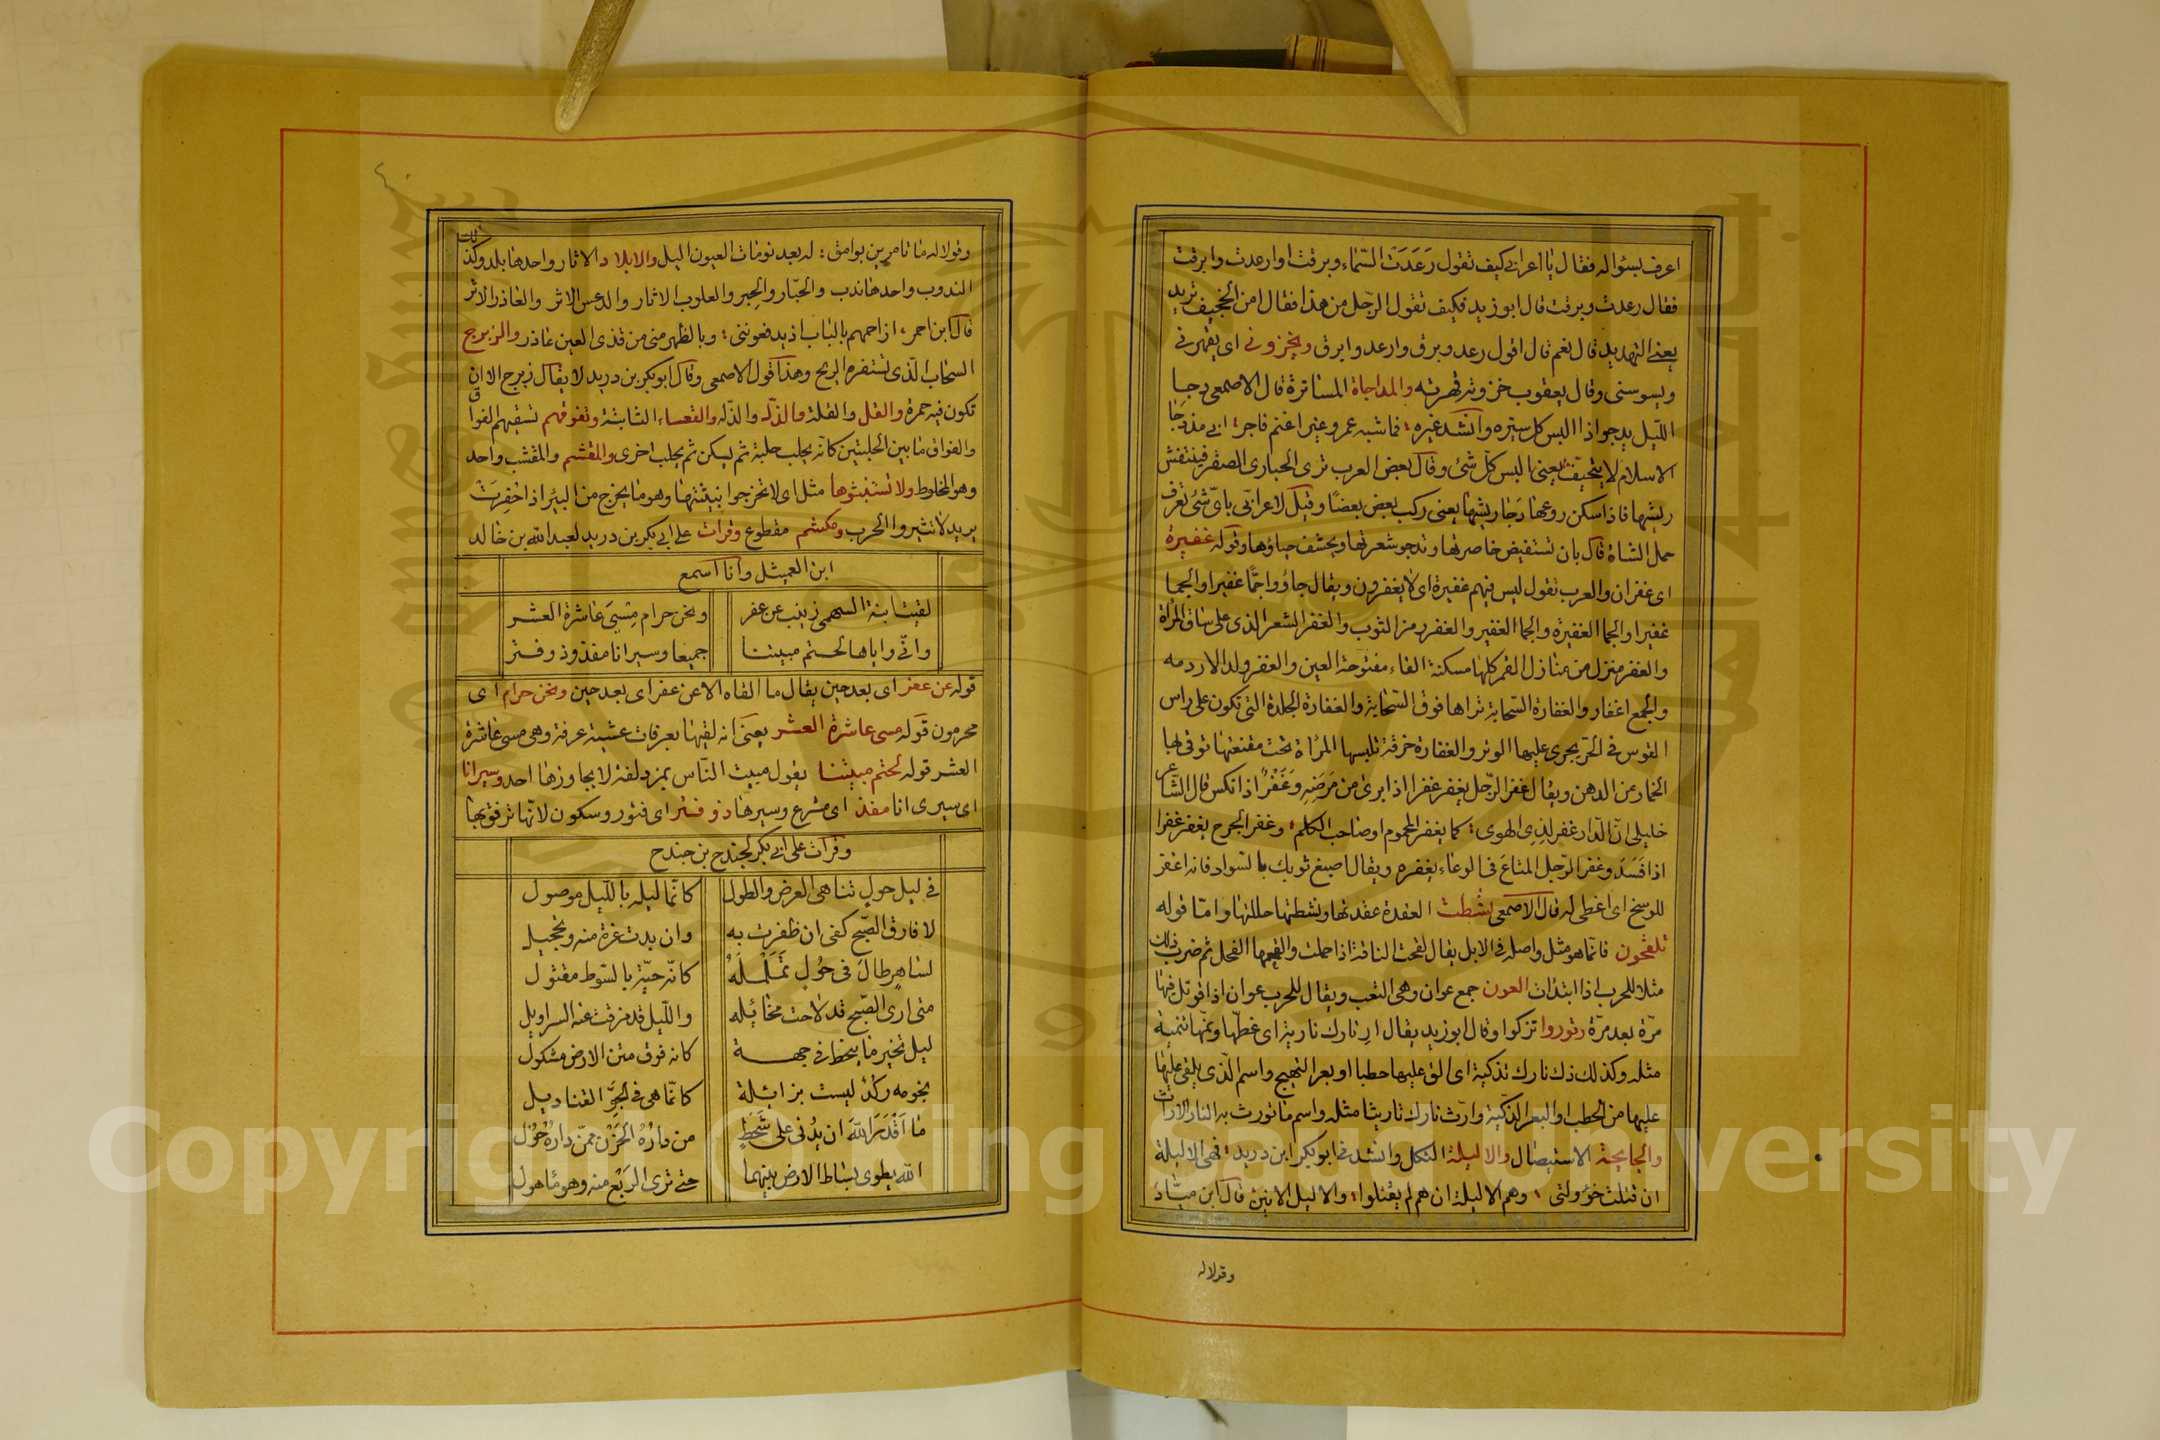 اعرف بسؤاله فقال يا اعرابي كيف تقول رَعَدَتْ السّماء وبرقت او ارعدت وابرقت
فقال رعدت وبرقت قال ابو زيد فكيف تقول الرّجل من هذا فقال امن الجخيف تريد
يعني التهديد قال نعم قال اقول رعد وبرق وارعد وابرق ويخزوني اى يقهرني
ويسوسني وقال يعقوب خزوته قهرته والمداجاة المساترة قال الاصمعى دجا
اللّيل يدجو اذا البس كل ستره وانشد غيره فما شبه عمرو غير اغتم فاجر ابى مذ دجا
الاسلام لا يتحنّف يعنى البس كلّ شئ وقال بعض العرب ترى الحبارى الصقر فينتفش
ريشها فاذا سكن روعها دَجا ريشها يعنى ركب بعض بعضًا وقيل لاعرابّى باىّ شئ تعرف
حمل الشاة قال بان تستفيض خاصرتها وتدجو شعرتها ويحشف حياؤها وقوله غفيرة
اى غفران والعرب تقول ليس فيهم غفيرة اى لا يغفرون ويقال جاؤوا جمّا غفيرا والجما
غفيرا والجما الغفيرة والجما الغفير والغفر زمز الثوب والغفر الشعر الذى على ساق المرأة
والغفر منزل من منازل القمر كلها مسكنة الفاء مفتوحة العين والغفر ولد الاروية
والجمع اغفار والغفارة السّحابة تراها فوق السّحابة والغفارة الجلدة التى تكون على راس
القوس في الحزّ يجرى عليها الوتر والغفارة خرقة تلبسها المرأة تحت مقنعتها توقى بها
الخمار من الدهن ويقال غفر الرّجل يغفر غفرا اذا برئ من مَرَضِهِ وَغَفَرَ اذا نكس قال الشاعر
خليلى انّ الدّار غفر لذى الهوى كما يغفر المحموم او صاحب الكلم وغفر الجرح يغفر غفرا
اذا فَسَدَ وغفر الرّجل المتاعَ فى الوعاء يغفره ويقال اصبغ ثوبك بالسّواد فانه اغفر
للوسخ اى اغطى له قال الاصمعى نشطت العقدة عقدتها ونشطتها حللتها وامّا قوله
تلقحون فانّما هو مثل واصله فى الابل يقال لقحت الناقة اذا حملت والقحها الفحل ثم ضرب ذلك
مثلا للحرب اذا ابتدأت العون جمع عوان وهى الثعب ويقال للحرب عوان اذا قوتل فيها
مرّة بعد مرّة وتوروا تزكوا وقال ابو زيد يقال ارّ نارك تارية اى غطّها ونمّها تنمية
مثله وكذلك ذك نارك تذكية اى الق عليها حطبا او بعرا لتهيج واسم الّذى يلقى عليها
عليها من الحطب او البعر الذّكية وارّث نارك تاريثا مثله واسم ما تورث به النار الاراث
والجايحة الاستيصال والاليلة الثكل وانشدنى ابو بكر ابن دريد فهى الاليلة
ان قتلت خؤولتى وهم الاليلة ان هم لم يقتلوا والاليل الانين قال ابن ميّاد
وقولاله
وقولا له ما تامرين بوامق له بعد نومات العيون اليل والابلاد الاثار واحدها بلد وكذلك
الندوب واحدها ندب والحبّار والحبر والعلوب الاثار والدعس الاثر والعاذر الاثر
قال ابن احمر ازاحمهم بالباب اذ يدفعوننى وبالظهر منى من قذى العين عاذر والزبرج
السّحاب الّذى تستفره الريح وهذا قول الاصمعى وقال ابو بكر بن دريد لا يقال زبرج الا ان
تكون فيه حمرة والقل والقلة والذلّ والذلّه والقعساء الثابتة وتفوقهم تسقيهم الفواق
والفواق ما بين الحلبتين كانّه يحلب حلبة ثم يسكن ثم يحلب اخرى والمقشم والمقشب واحد
وهو المخلوط ولا تستنبثوها مثل اى لا تخرجوا نبيثتها وهو ما يخرج من البئر اذا حفرت
يريد لا تثيروا الحرب ومكشم مقطوع وقرات على ابى بكر بن دريد لعبد الله بن خالد
ابن العميثل وانا اسمع
لقيت ابنة السهمى زينب عن عفر ونحن حرام مسى عاشرة العشر
وانّى واياها لحتم مبيتنا جميعا وسيرانا مغذ وذو فتر
قوله عن عفر اى بعد حين يقال ما القاه الا عن عفر اى بعد حين ونحن حرام اى
محرمون قوله مسى عاشرة العشر يعنى انه لقيها بعرفات عشية عرفة وهى مسى عاشرة
العشر قوله لحتم مبيتنا يقول مبيت النّاس بمزدلفة لا يجاوزها احد وسيرانا
اى سيرى انا مغذ اى مسرع وسيرها ذو فتر اى فتور وسكون لانّها ترفق بها
وقرات على ابى بكر لحندج بن حندج
فى ليل حول تناهى العرض والطول كانّما ليله باللّيل موصول
لا فارق الصّبح كفى ان ظفرت به وان بدت غرة منه وتحجيل
لساهرٍ طالَ فى حُولٍ تَمَلْمُلُهُ كانّه حيّة بالسّوط مقتول
متى ارى الصّبح قد لاحت مخائله والليل قد مزقت عنه السراويل
ليل تحير ما ينحط فى جهة كانه فوق متن الارض مشكول
نجومه ركد ليست بزائلة كانّما هى فى الجَوّ القناديل
مَا اَقْدَرَ اللهَ ان يُدنى على شَحَطٍ من دارُهُ الحَزْن ممّن دارُهُ حُوْل
الله يطوى بساط الارض بينهما حتى ترى الرَبْع منه وهو ماهول
Copyright © King Saud University
1957